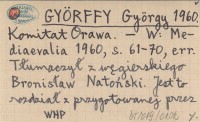 GYÖRFFY György 1960.
Komitat Orawa. — W: Me-
diaevalia 1960, s. 61-70, err.
Tłumaczył z węgierskiego
Bronisław Natoński. Jest to
rozdział z przygotowanej przez
WHP